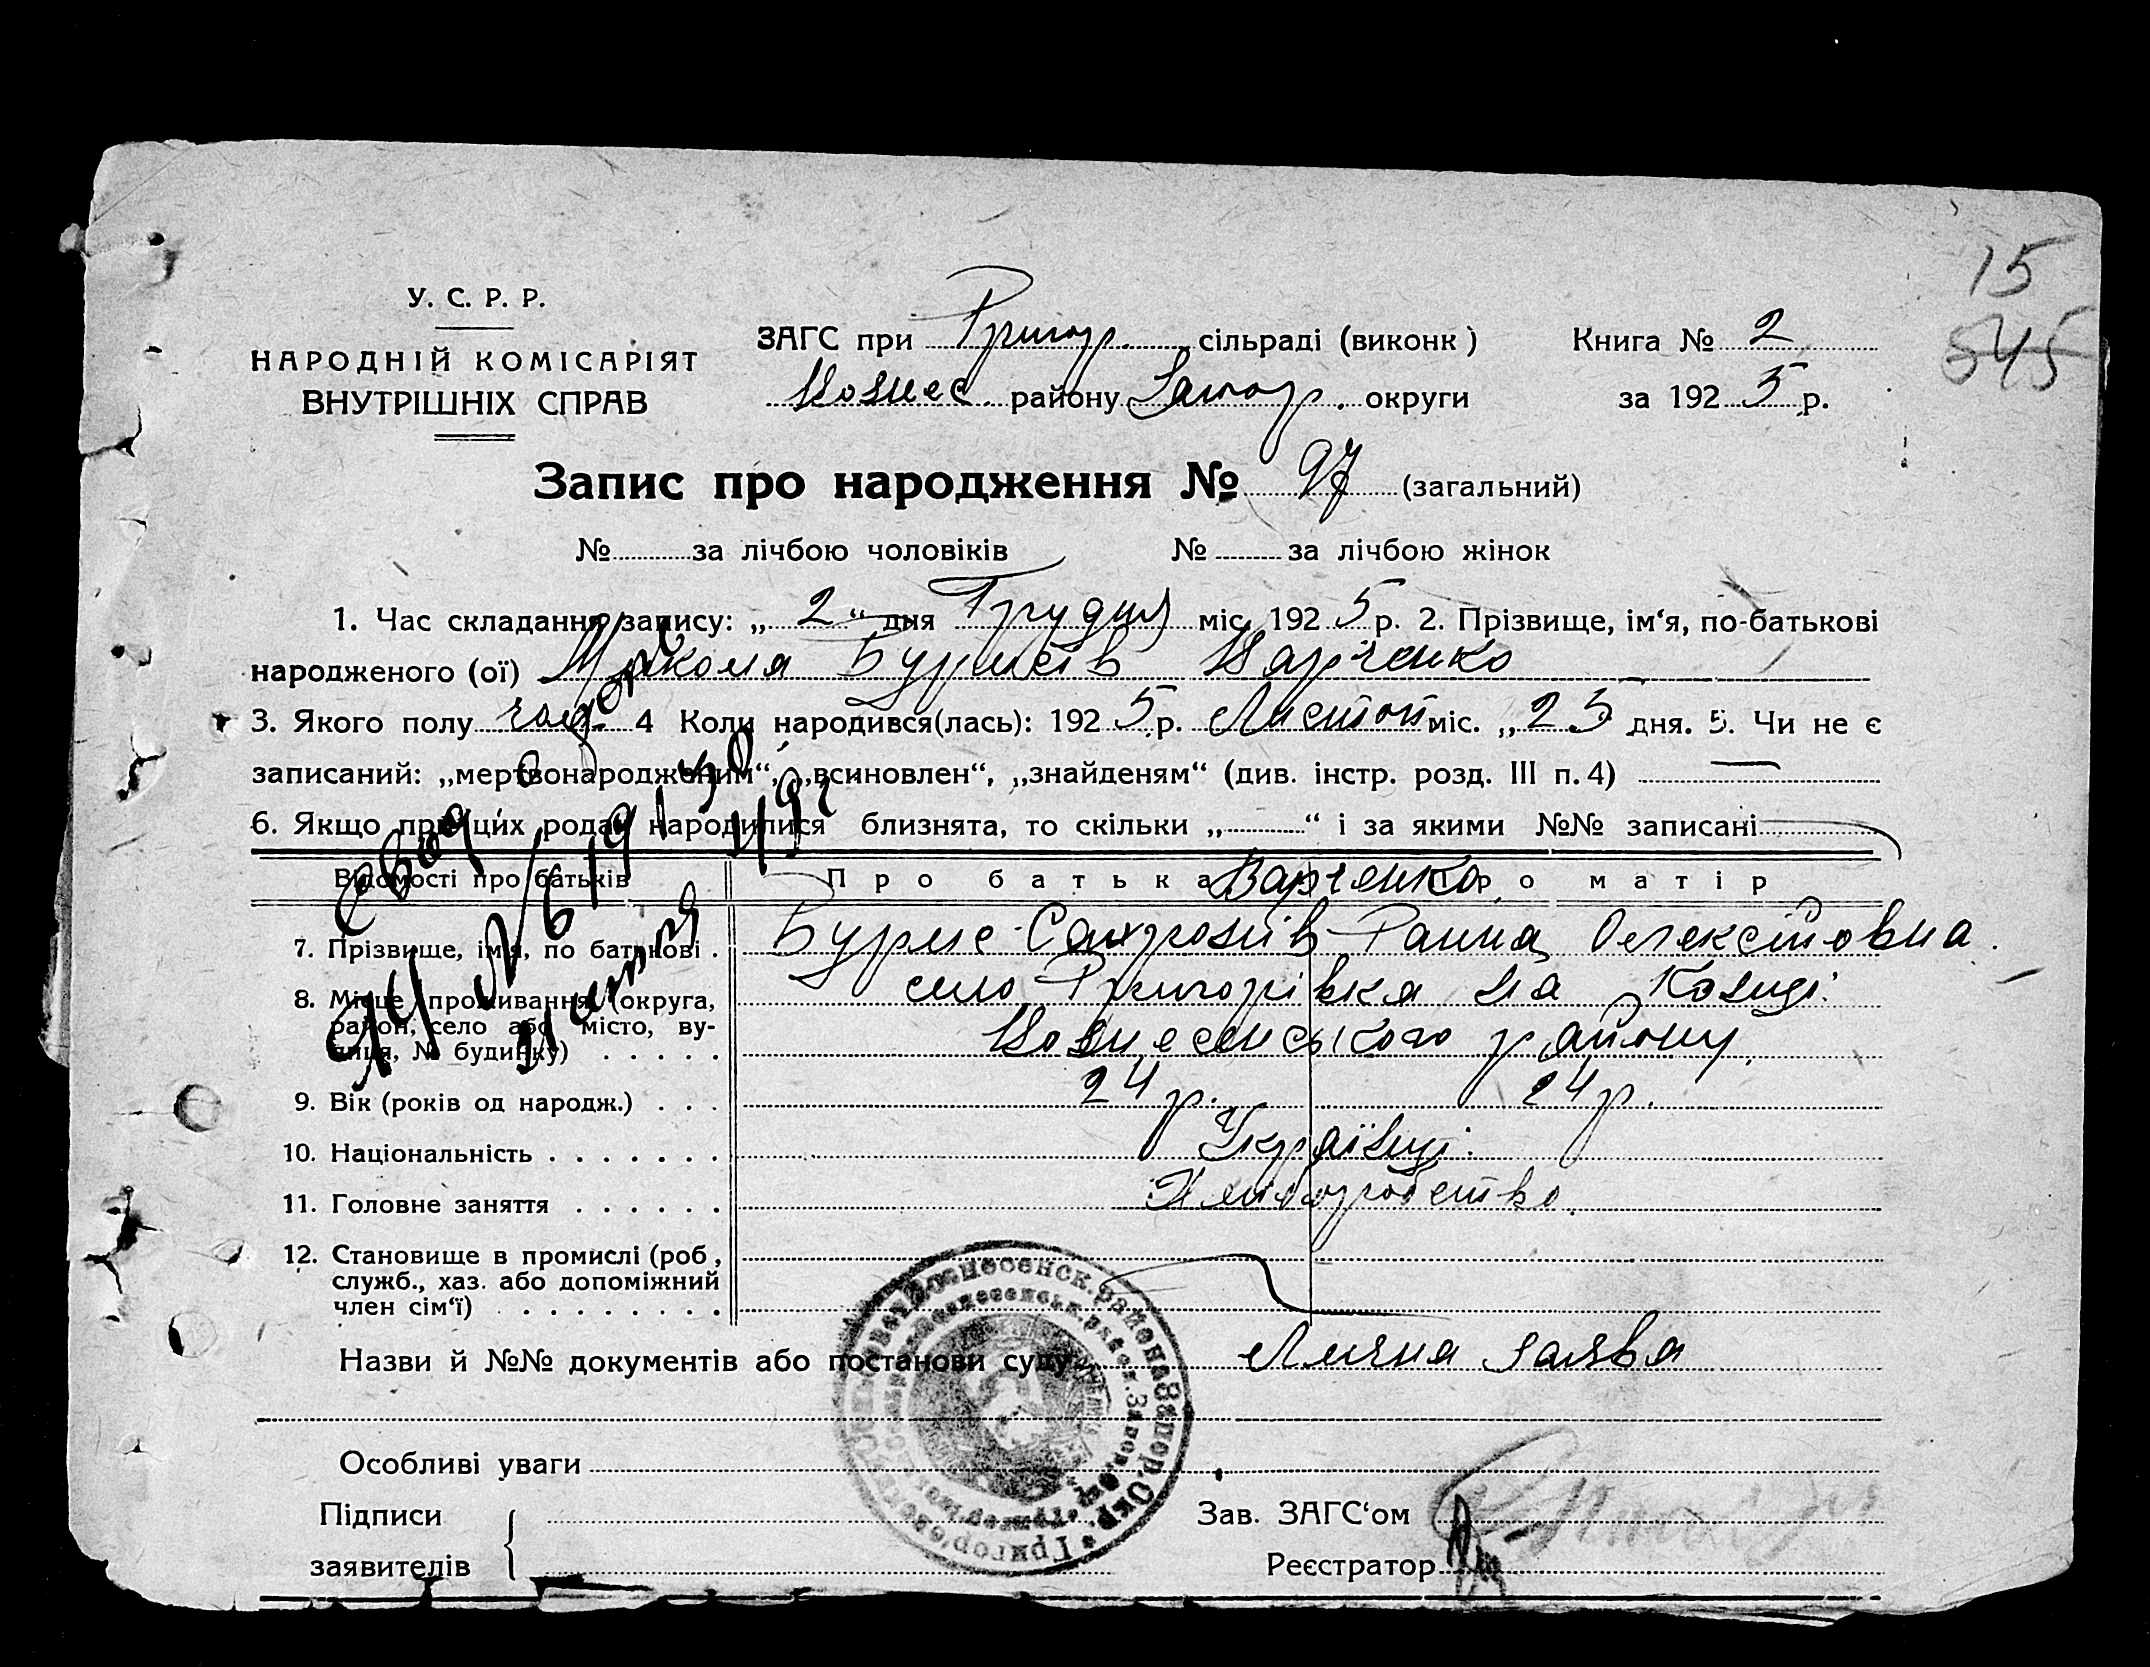 15
545
У. С. Р. Р.
НАРОДНІЙ КОМІСАРІЯТ
ВНУТРІШНІХ СПРАВ
ЗАГС при Григор. сільраді (виконк) Книга № 2
Вознес. району Запор. округи за 1925 р.
Запис про народження № 97 (загальний)
№ за лічбою чоловіків № за лічбою жінок
1. Час складання запису: „2“ дня Грудня міс. 1925 р. 2. Прізвище, ім‘я, по-батькові
народженого (ої) Микола Харченко
3. Якого полу чол. 4 Коли народився(лась): 1925 р. Листоп міс. „25 дня. 5. Чи не є
записаний: „мертвонародженим“, „всиновлен“, „знайденям“ (див. інстр. розд. III п. 4) —
6. Якщо при цих родах народилися близнята, то скільки „ “ і за якими №№ записані
Відомості про батьків Про батька Про матір
Харченко
7. Прізвище, ім‘я, по батькові . Ганна Олексіївна.
8. Місце проживання (округа, район, село або місто, вулиця, № будинку) . . . . .
село Григорівка на Конці
Вознесенського району
9. Вік (років од народж.) . . . 24 р. 24 р.
10. Національність . . . . . . . Українці.
11. Головне заняття . . . . . . Хліборобство.
12. Становище в промислі (роб., служб., хаз. або допоміжний член сім‘ї) . . . . . . . . .
Назви й №№ документів або постанови суду Лична заява
Особливі уваги
Підписи
заявителів
Зав. ЗАГС‘ом
Реєстратор